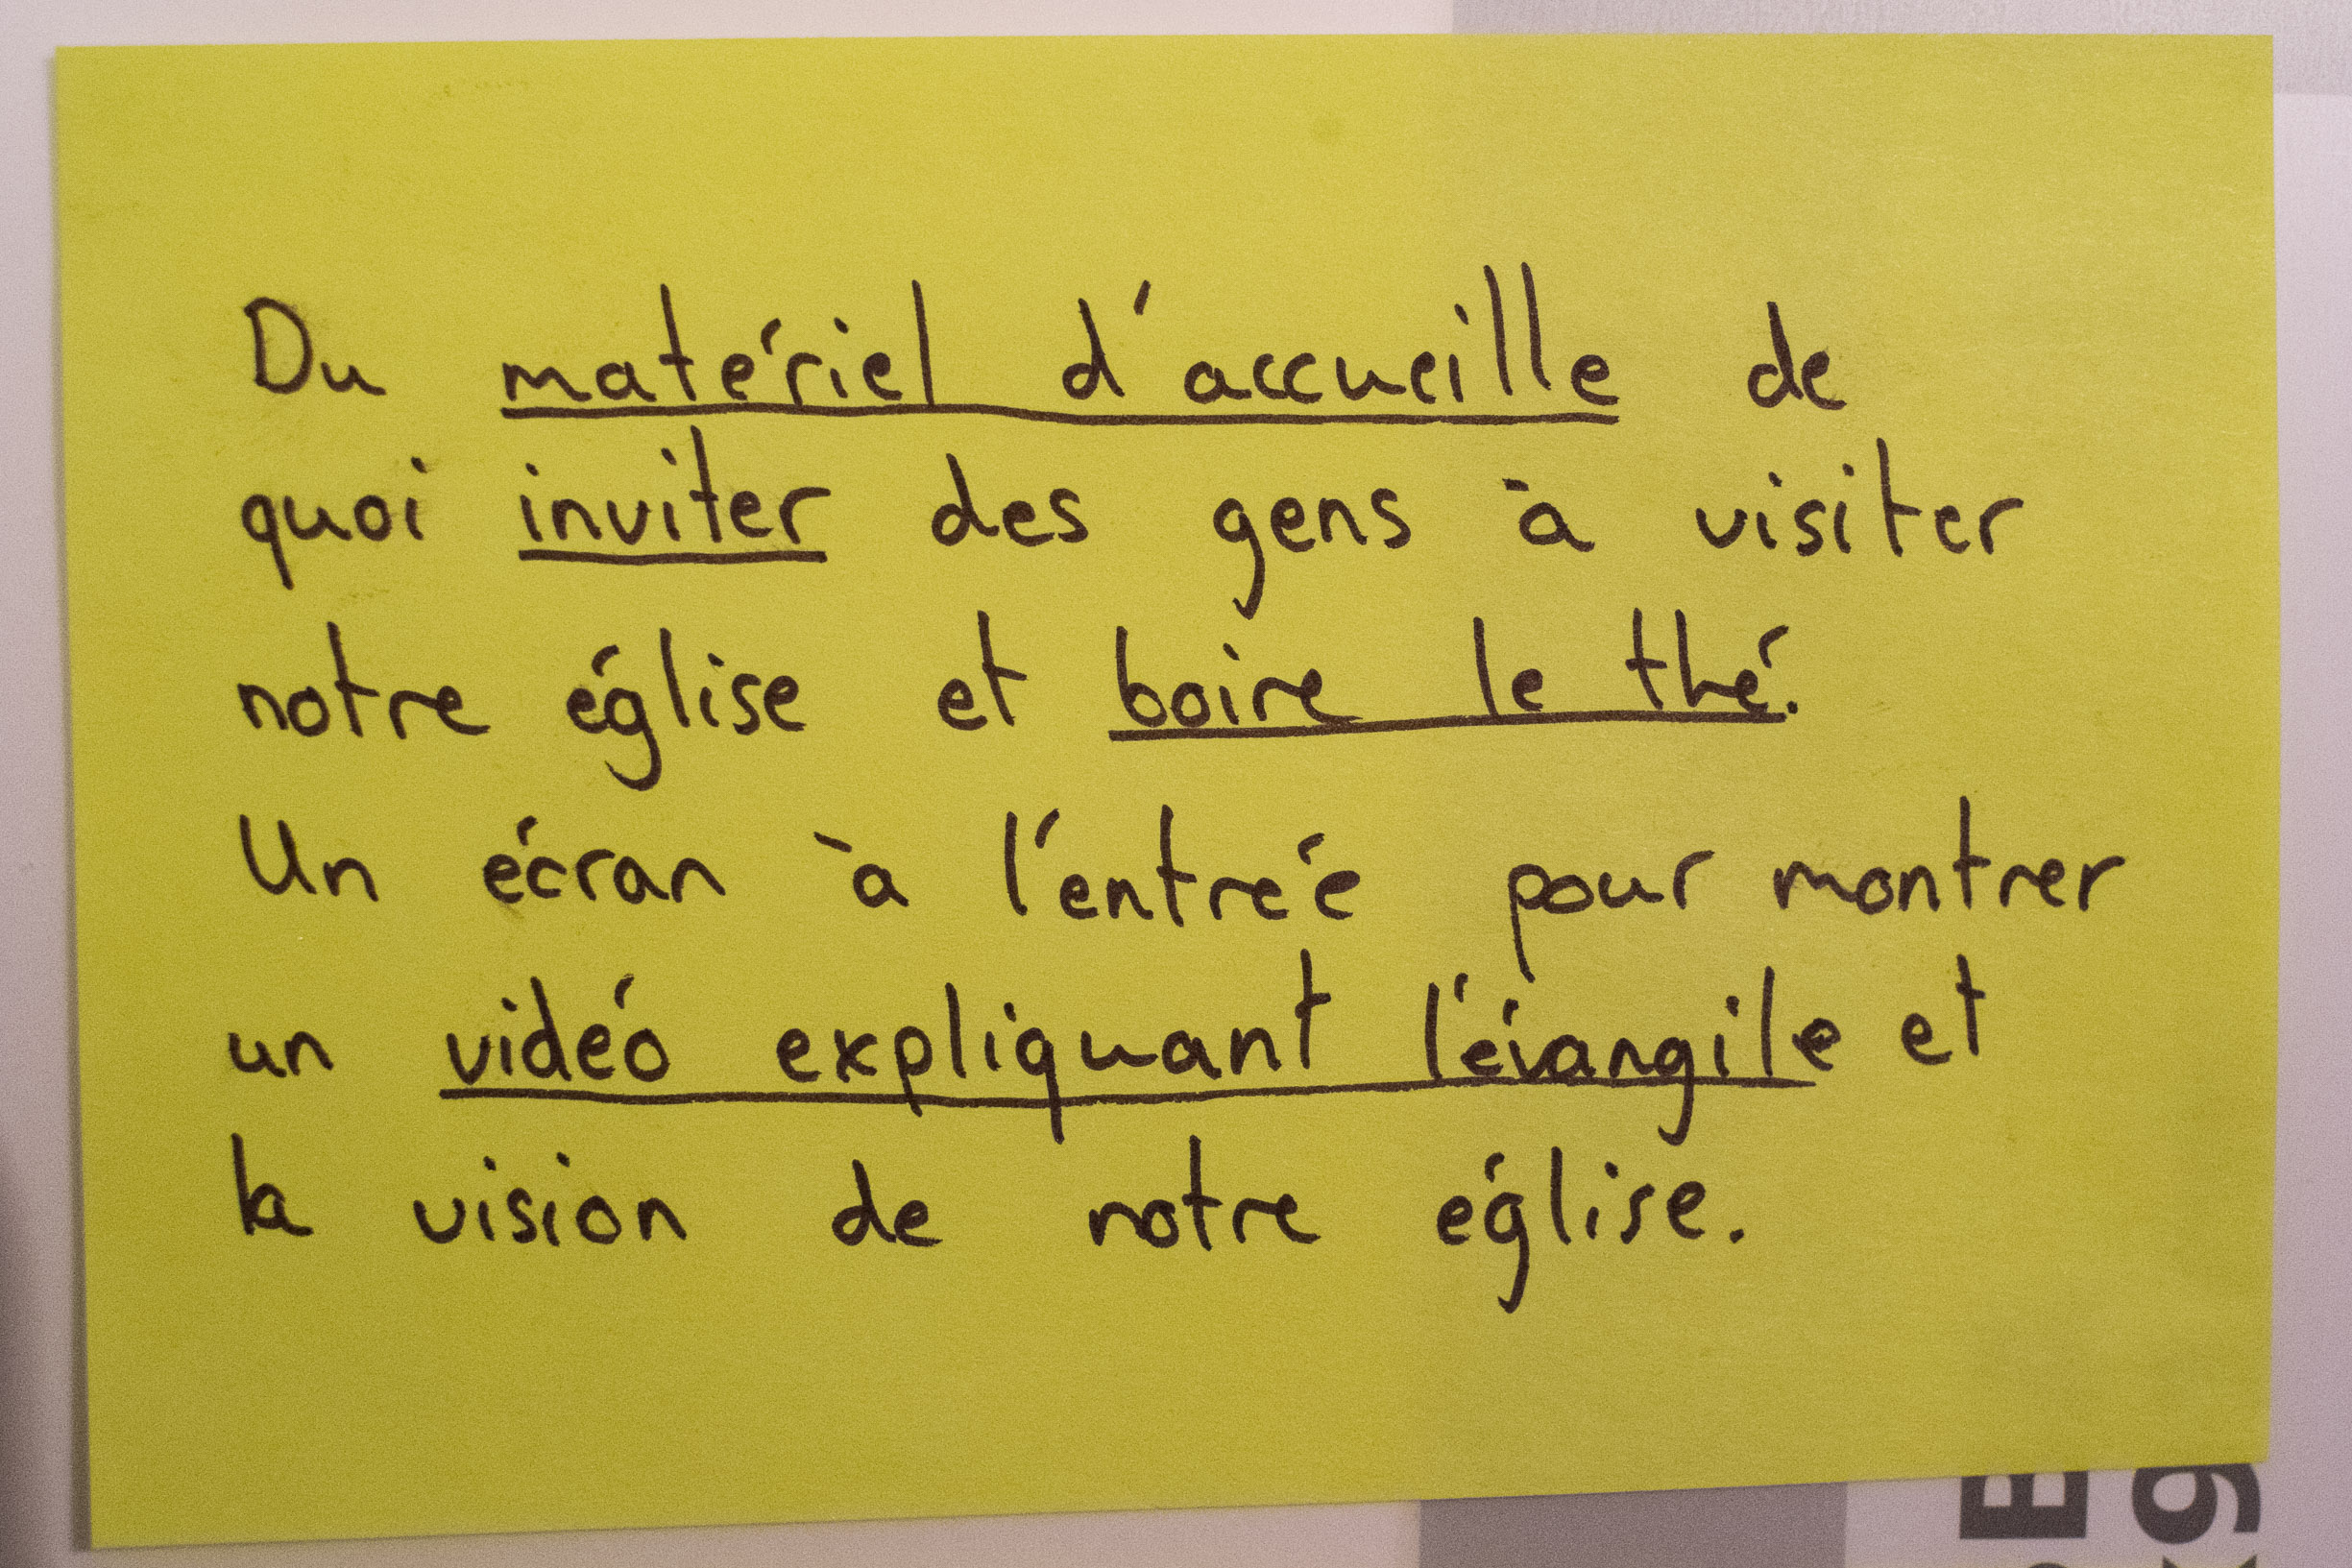 Du matériel d'accueille de
quoi inviter des gens à visiter
notre église et boire le thé.
Un écran à l'entrée pour montrer
un vidéo expliquant l'évangile et
la vision de notre église.